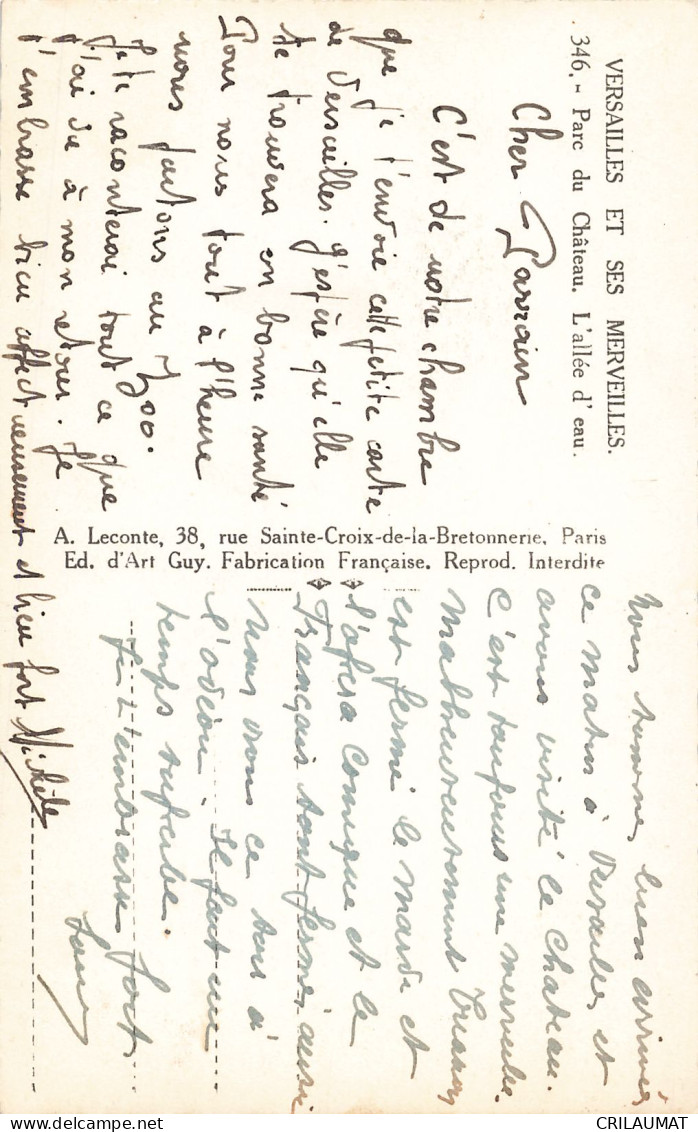 VERSAILLES ET SES MERVEILLES.
346. - Parc du Château. L'allée d'eau.
Cher Parrain
C'est de notre chambre
que je t'envoie cette petite carte
de Versailles. J'espère qu'elle
te trouvera en bonne santé
Pour nous tout à l'heure
nous partons au Zoo.
Je te raconterai tout ce que
j'ai vu à mon retour. Je
t'embrasse bien affectueusement et bien fort Michèle
A. Leconte, 38, rue Sainte-Croix-de-la-Bretonnerie, Paris
Ed. d'Art Guy. Fabrication Française. Reprod. Interdite
Nous sommes bien arrivés
ce matin à Versailles et
avons visité le Chateau.
C'est toujours une merveille.
Malheureusement Trianon
est fermé le mardi et
l'opéra comique et le
Français sont fermés aussi
Nous irons ce soir à
l'odéon. Il fait un
temps superbe.
Je t'embrasse fort
CRILAUMAT